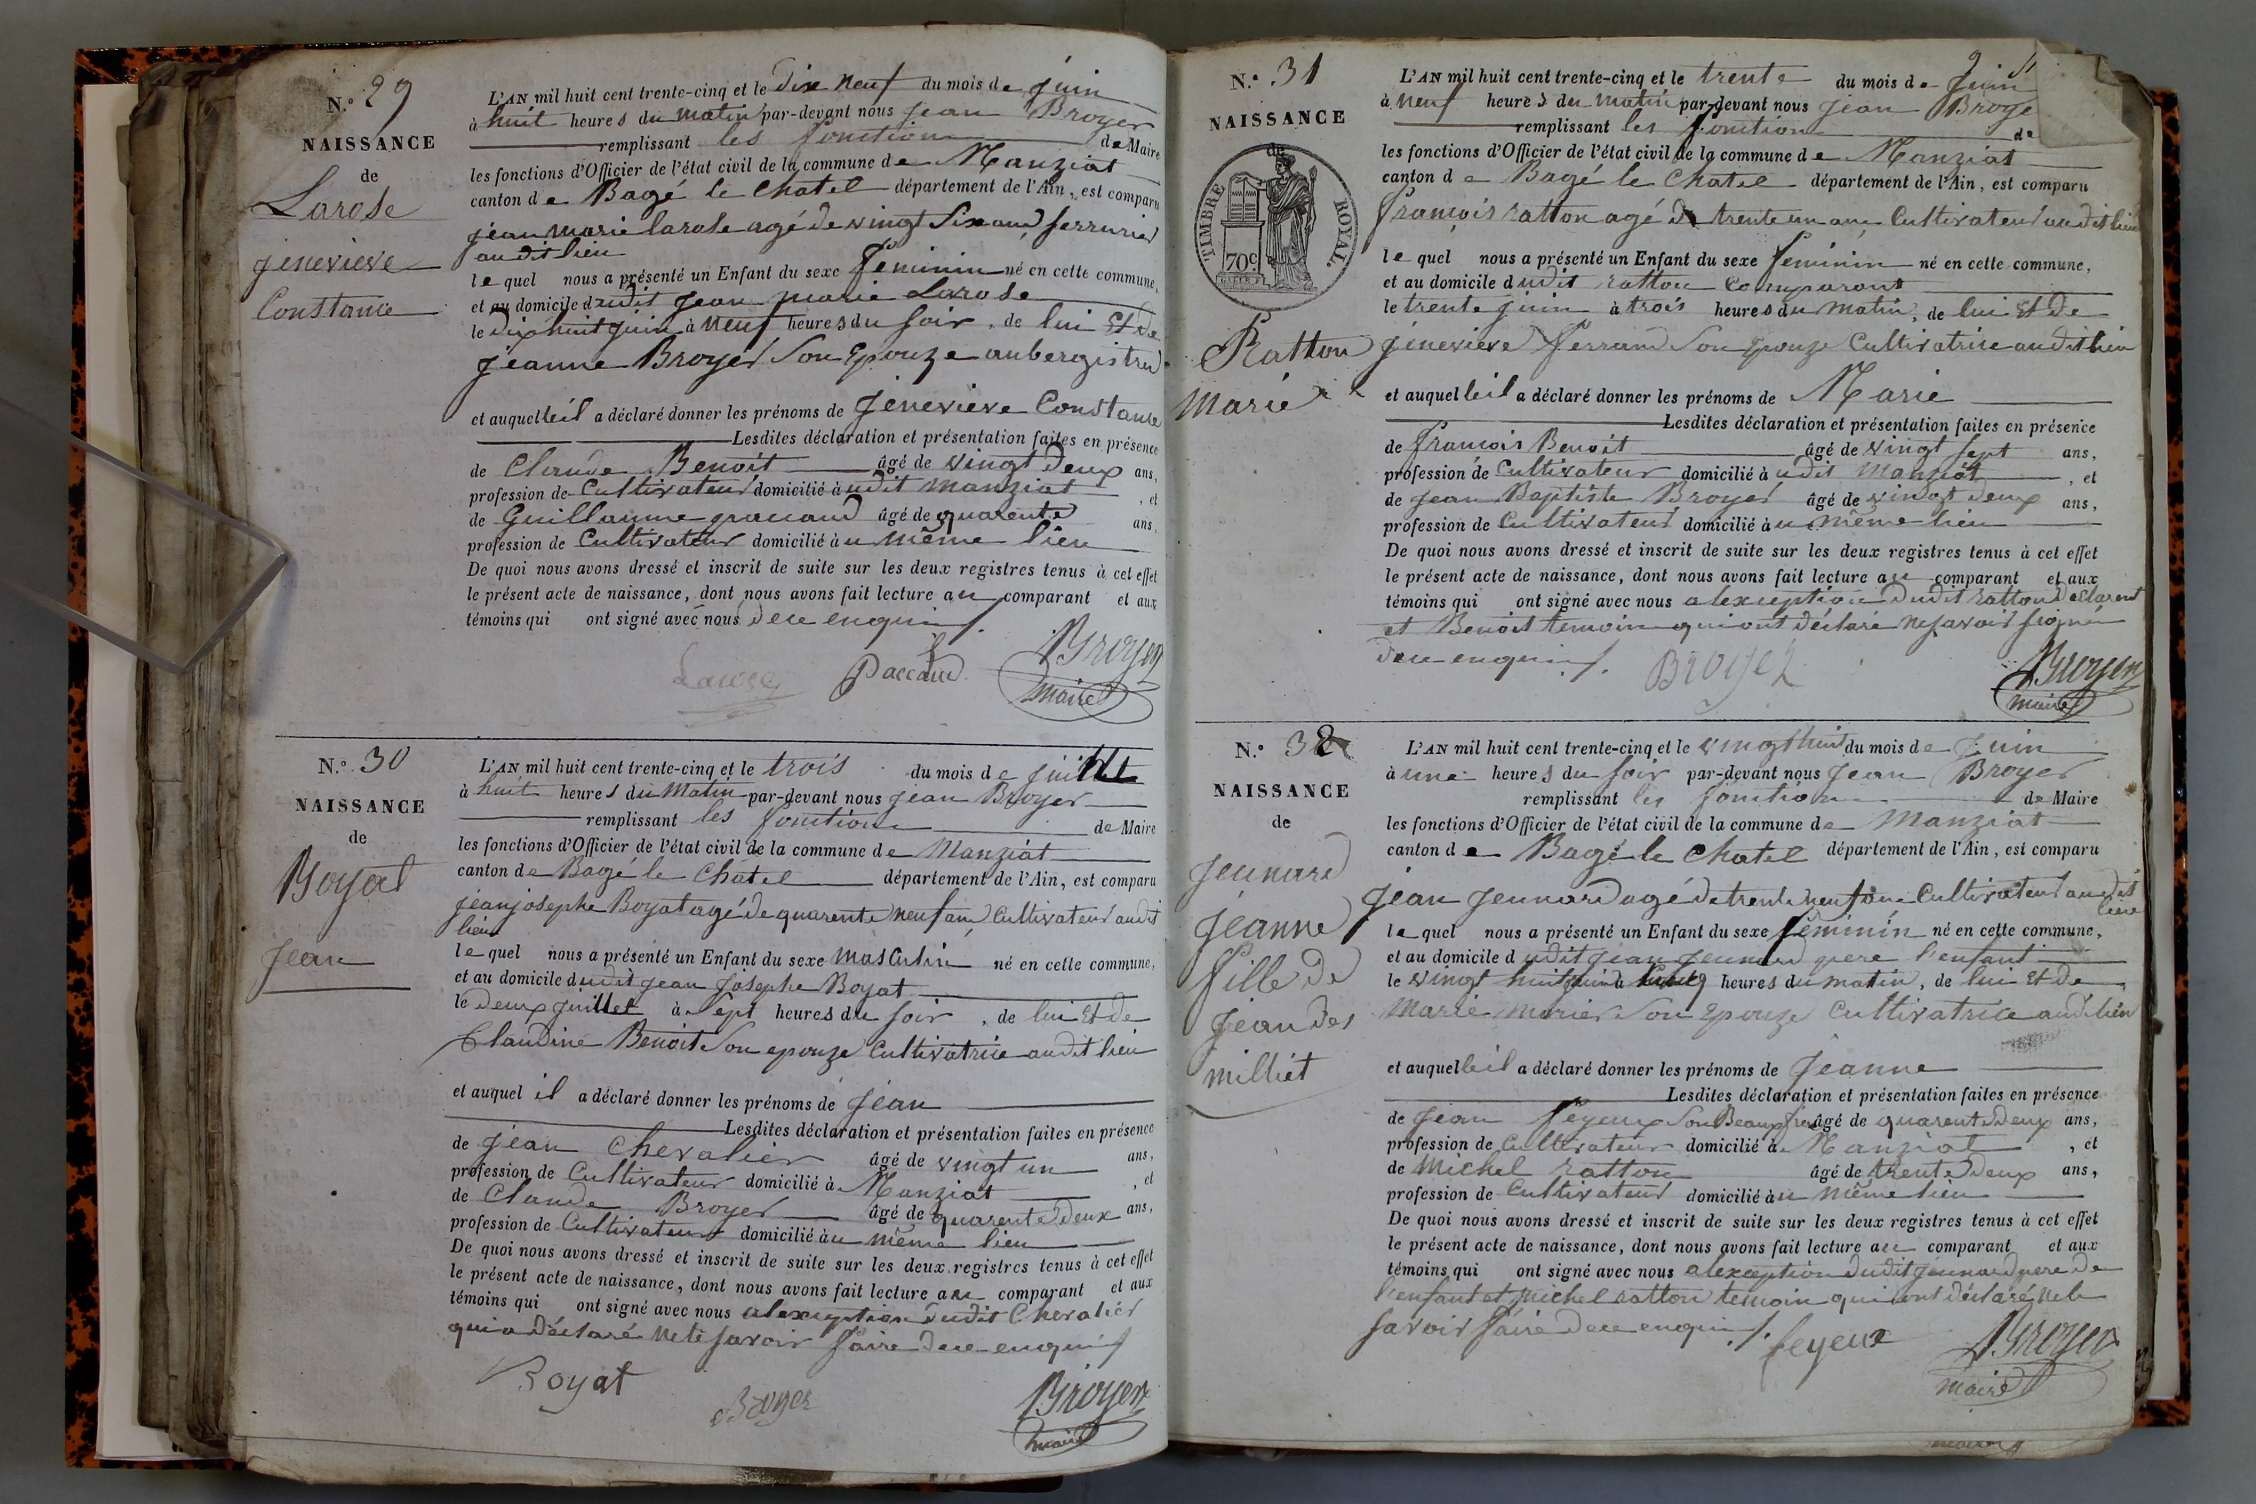 N.° 29
NAISSANCE
de
Larose
jenevieve
Constance
L'AN mil huit cent trente-cinq et le dix neuf du mois de juin
à huit heures du matin par-devant nous jean Broyer
remplissant les fonction de Maire
les fonctions d'Officier de l'état civil de la commune de Manziat
canton de Bagé le chatel département de l'Ain, est comparu
jean marie larose agé de vingt six ans serrurier
audit lieu
lequel nous a présenté un Enfant du sexe feminin né en cette commune,
et au domicile dudit jean marie Larose
le dix huit juin à neuf heures du soir, de lui et de
jeanne Broyer son epouze aubergistre
et auquel il a déclaré donner les prénoms de jenevieve Constance
Lesdites déclaration et présentation faites en présence
de Claude Benoit âgé de vingt deux ans,
profession de Cultivateur domicilié à udit manziat, et
de Guillaume âgé de quarente ans,
profession de Cultivateur domicilié à u même lieu
De quoi nous avons dressé et inscrit de suite sur les deux registres tenus à cet effet
le présent acte de naissance, dont nous avons fait lecture au comparant et aux
témoins qui ont signé avec nous de ce enquis
Paccaud Broyer
maire
N.° 30
NAISSANCE
de
Boyat
jean
L'AN mil huit cent trente-cinq et le trois du mois de juillet
à huit heures du matin par-devant nous jean Broyer
remplissant les fonction de Maire
les fonctions d'Officier de l'état civil de la commune de Manziat
canton de Bagé le Châtel département de l'Ain, est comparu
jean josephe Boyat agé de quarente neuf ans Cultivateur audit
lieu
lequel nous a présenté un Enfant du sexe masculin né en cette commune,
et au domicile dudit jean josephe Boyat
le deux juillet à sept heures du soir, de lui et de
Claudine Benoit son epouze Cultivatrice audit lieu
et auquel il a déclaré donner les prénoms de jean
Lesdites déclaration et présentation faites en présence
de jean Chevalier âgé de vingt un ans,
profession de Cultivateur domicilié à Manziat, et
de Claude Broyer âgé de quarente deux ans,
profession de Cultivateur domicilié à u même lieu
De quoi nous avons dressé et inscrit de suite sur les deux registres tenus à cet effet
le présent acte de naissance, dont nous avons fait lecture au comparant et aux
témoins qui ont signé avec nous alexception dudit Chevalier
qui a déclaré ne le savoir faire de ce enquis
Boyat Broyer Broyer
maire
N.° 31
NAISSANCE
de
TIMBRE ROYAL.
70c.
Ratton
Marie
L'AN mil huit cent trente-cinq et le trente du mois de juin
à neuf heures du matin par-devant nous jean Broye
remplissant les fonction de
les fonctions d'Officier de l'état civil de la commune de Manziat
canton de Bagé le Chatel département de l'Ain, est comparu
françois ratton agé de trente un ans Cultivateur audit lieu
lequel nous a présenté un Enfant du sexe feminin né en cette commune,
et au domicile dudit ratton comparant
le trente juin à trois heures du matin, de lui et de
jenevieve ferrand son epouze Cultivatrice audit lieu
et auquel il a déclaré donner les prénoms de Marie
Lesdites déclaration et présentation faites en présence
de françois Benoit âgé de vingt sept ans,
profession de Cultivateur domicilié à udit manziat, et
de jean Baptiste Broyer âgé de vingt deux ans,
profession de Cultivateur domicilié à u même lieu
De quoi nous avons dressé et inscrit de suite sur les deux registres tenus à cet effet
le présent acte de naissance, dont nous avons fait lecture au comparant et aux
témoins qui ont signé avec nous alexception dudit ratton
et Benoit temoin qui ont déclaré ne savoir signé
de ce enquis. Broyer Broyer
maire
N.° 32
NAISSANCE
de
jeunard
jeanne
fille de
jean des
milliet
L'AN mil huit cent trente-cinq et le vingt huit du mois de juin
à une heures du soir par-devant nous jean Broyer
remplissant les fonction de Maire
les fonctions d'Officier de l'état civil de la commune de Manziat
canton de Bagé le Chatel département de l'Ain, est comparu
jean jeunard agé de trente neuf ans Cultivateur audit
lieu
lequel nous a présenté un Enfant du sexe féminin né en cette commune,
et au domicile dudit jean jeunard pere l'enfant
le vingt huit juin à heures du matin, de lui et de
Marie morier son epouze Cultivatrice audit lieu
et auquel il a déclaré donner les prénoms de jeanne
Lesdites déclaration et présentation faites en présence
de jean feyeux son Beaux frere âgé de quarente deux ans,
profession de Cultivateur domicilié à Manziat, et
de Michel ratton âgé de trente deux ans,
profession de Cultivateur domicilié à u même lieu
De quoi nous avons dressé et inscrit de suite sur les deux registres tenus à cet effet
le présent acte de naissance, dont nous avons fait lecture au comparant et aux
témoins qui ont signé avec nous alexception dudit jeunard pere de
l'enfant et michel ratton temoin qui ont déclaré ne le
savoir faire de ce enquis. feyeux Broyer
maire